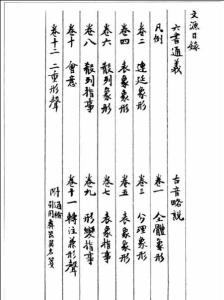 文源目錄
六書通義
古音略說
凡例
卷一 全體象形
卷二 連延象形
卷三 分理象形
卷四 表象象形
卷五 表象象形
卷六 散列指事
卷七 表象指事
卷八 散列指事
卷九 形變指事
卷十 會意
卷十一 轉注兼形聲
卷十二 二重形聲
附 通檢
引用彝器異名箋